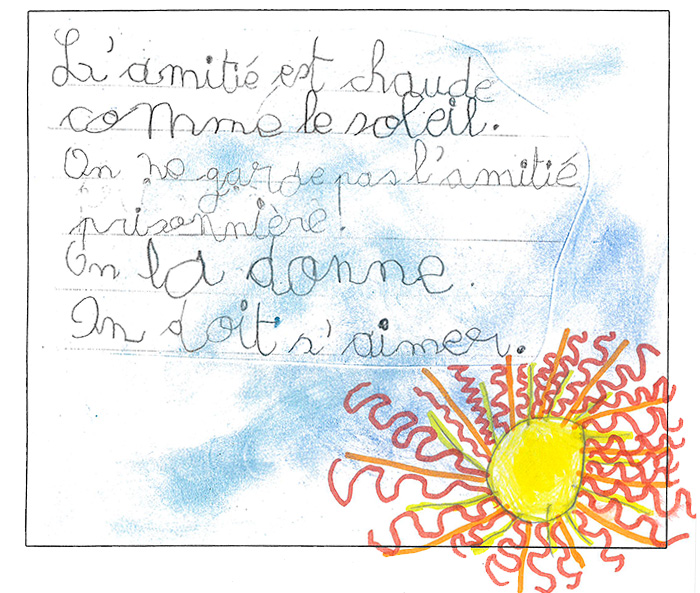 L'amitié est chaude
comme le soleil.
On ne garde pas l'amitié
prisonnière!
On la donne.
On doit s'aimer.